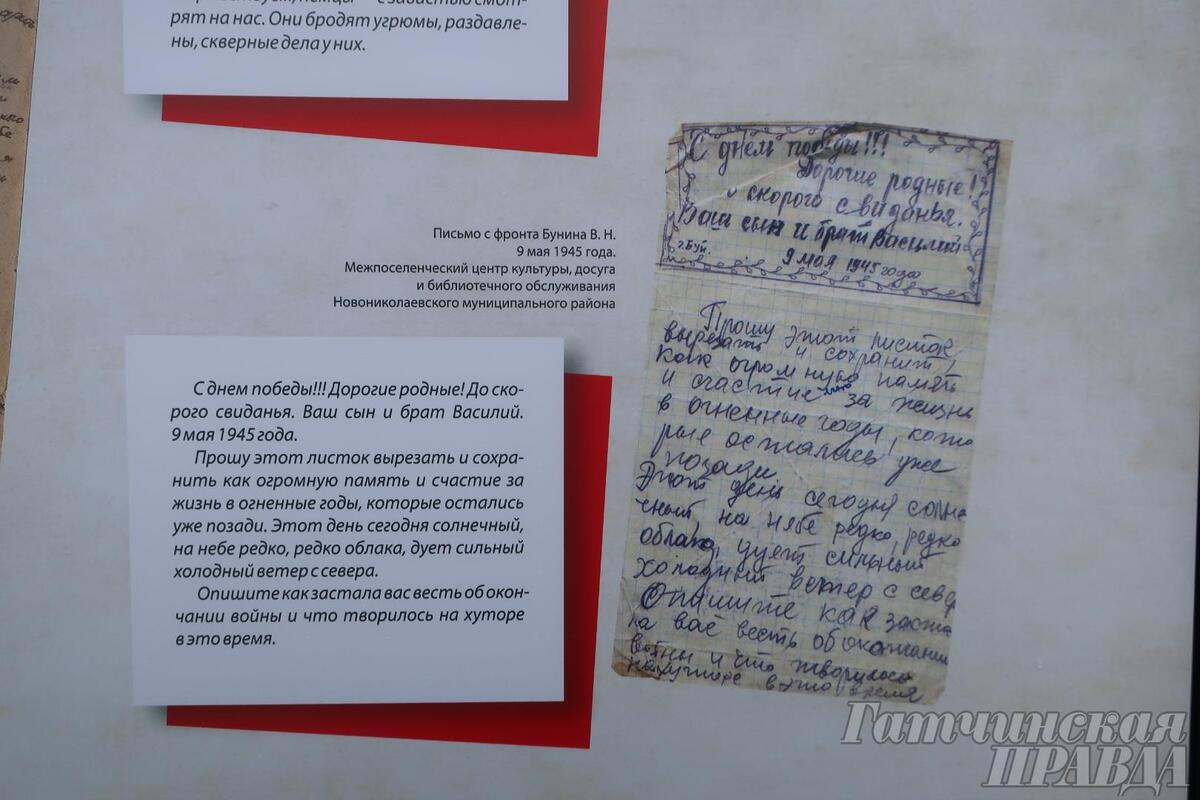 рят на нас. Они бродят угрюмы, раздавле-
ны, скверные дела у них.
Письмо с фронта Бунина В. Н.
9 мая 1945 года.
Межпоселенческий центр культуры, досуга
и библиотечного обслуживания
Новониколаевского муниципального района
С днем победы!!! Дорогие родные! До ско-
рого свиданья. Ваш сын и брат Василий.
9 мая 1945 года.
Прошу этот листок вырезать и сохра-
нить как огромную память и счастие за
жизнь в огненные годы, которые остались
уже позади. Этот день сегодня солнечный,
на небе редко, редко облака, дует сильный
холодный ветер с севера.
Опишите как застала вас весть об окон-
чании войны и что творилось на хуторе
в это время.
С днем победы!!!
Дорогие родные!
скорого свиданья.
Ваш сын и брат Василий
г. Буй.
9 мая 1945 года
Прошу этот листок
вырезать и сохранить
как огромную память
и счастие за жизнь
в огненные годы, кото
рые остались уже
позади.
Этот день сегодня солне
чный, на небе редко, редко
облака, дует сильный
холодный ветер с север
Опишите как заста
ла вас весть об окончании
войны и что творилось
на хуторе в это время
Гатчинская
ПРАВДА